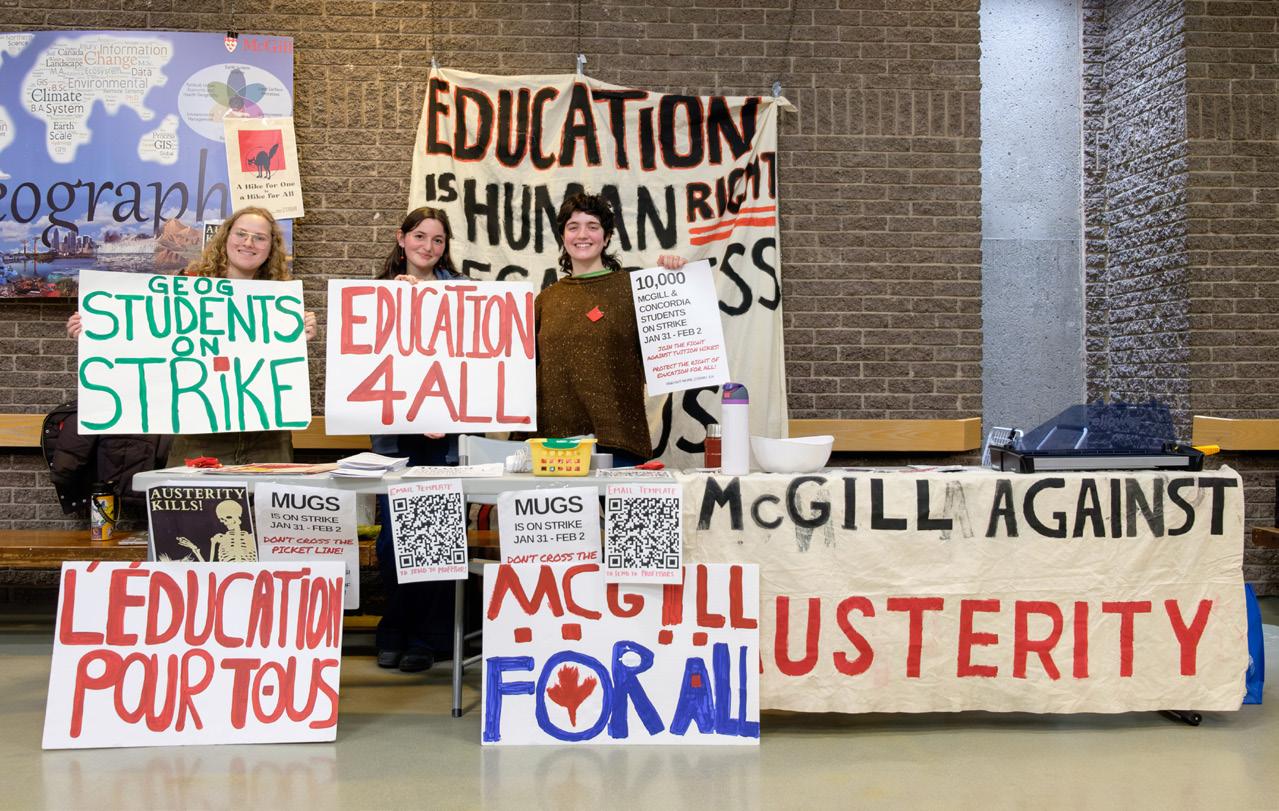 McGill
Information
Change
Canada
Landscape
Ecosystem
Data
GIS
Environmental
Climate
B.A System
Earth
Scale
Process
GIS
eograph
A Hike for One
is
a Hike for All
EDUCATION
IS HUMAN RIGHT
GEOG
STUDENTS
ON
STRIKE
EDUCATION
4 ALL
10,000
MCGILL &
CONCORDIA
STUDENTS
ON STRIKE
JAN 31 - FEB 2
JOIN THE FIGHT
AGAINST TUITION HIKES!
PROTECT THE RIGHT OF
EDUCATION FOR ALL!
AUSTERITY
KILLS!
MUGS
IS ON STRIKE
JAN 31 - FEB 2
DON'T CROSS THE
PICKET LINE!
EMAIL TEMPLATE
TO SEND TO PROFESSORS
MUGS
IS ON STRIKE
JAN 31 - FEB 2
DON'T CROSS THE
EMAIL TEMPLATE
TO SEND TO PROFESSORS
L'ÉDUCATION
POUR TOUS
MCGILL
FOR ALL
MCGILL AGAINST
AUSTERITY